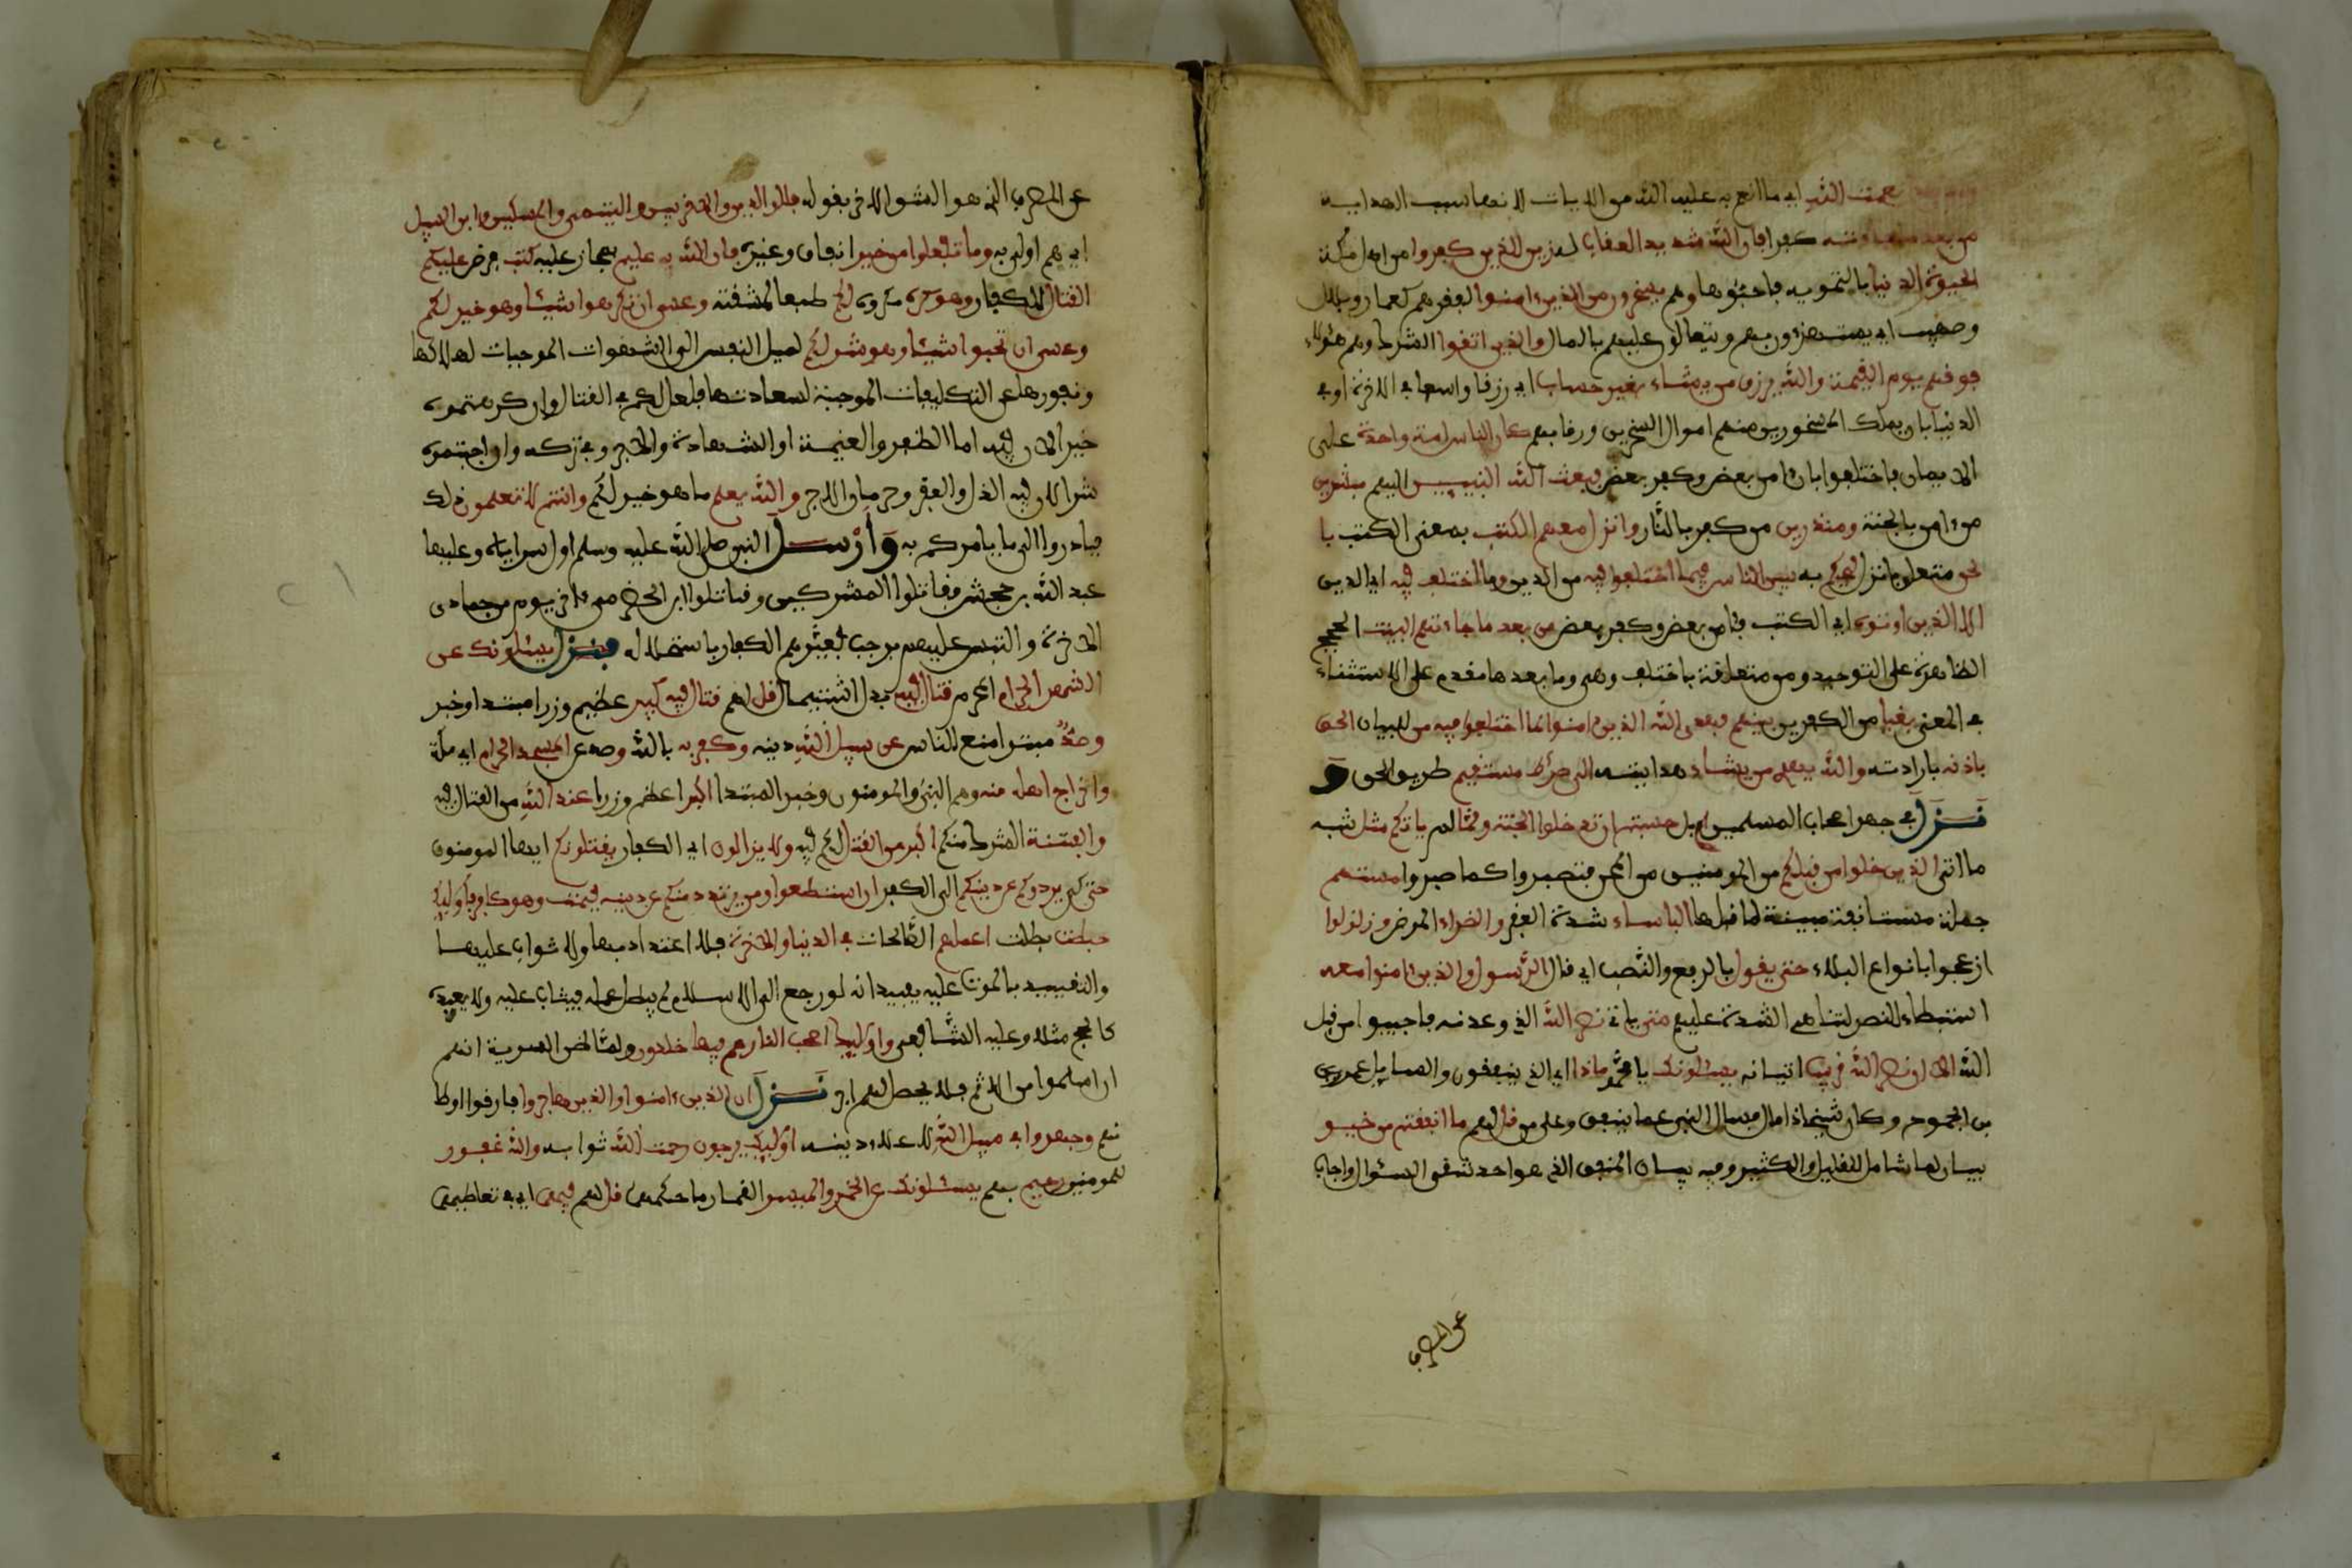 نعمت الله اي ما انعم به عليه الله من الايات لانها سبب الهداية
من بعد ما جاءته كفرا فان الله شديد العقاب له زين للذين كفروا من اهل مكة
الحيوة الدنيا بالتمويه فاحبوها وهم يسخرون من الذين ءامنوا لفقرهم كعمار وبلال
وصهيب اي يستهزءون بهم ويتعالون عليهم بالمال والذين اتقوا الشرك وهم هؤلاء
فوقهم يوم القيمة والله يرزق من يشاء بغير حساب اي رزقا واسعا في الاخرة او في
الدنيا بان يملك المسخورين منهم اموال الساخرين ورقابهم كان الناس امة واحدة على
الايمان فاختلفوا بان ءامن بعض وكفر بعض فبعث الله النبيين اليهم مبشرين
من ءامن بالجنة ومنذرين من كفر بالنار وانزل معهم الكتب بمعنى الكتب با
لحق متعلق بانزل ليحكم به بين الناس فيما اختلفوا فيه من الدين وما اختلف فيه اي الدين
الا الذين اوتوه اي الكتب فامن بعض وكفر بعض من بعد ما جاءتهم البينت الحجج
الظاهرة على التوحيد ومن متعلقة باختلف وهي وما بعدها مقدم على الاستثناء
في المعنى بغيا من الكفرين بينهم فهدى الله الذين ءامنوا لما اختلفوا فيه من للبيان الحق
باذنه بارادته والله يهدي من يشاء هدايته الى صرط مستقيم طريق الحق و
نزل في جهد اصحاب المسلمين ام بل حسبتم ان تدخلوا الجنة ولما لم ياتكم مثل شبه
ما اتى الذين خلوا من قبلكم من المومنين من المحن فتصبروا كما صبروا مستهم
جملة مستانفة مبينة لما قبلها الباساء شدة الفقر والضراء المرض وزلزلوا
ازعجوا بانواع البلاء حتى يقول بالرفع والنصب اي قال الرسول والذين ءامنوا معه
استبطاء للنصر لتناهي الشدة عليهم متى ياتي نصر الله الذي وعدنه فاجيبوا من قبل
الله الا ان نصر الله قريب اتيانه يسئلونك يا محمد ماذا اي الذي ينفقون والسايل عمرو
بن الجموح وكان شيخا ذا مال فسال النبي عما ينفق وعلى من قل لهم ما انفقتم من خير
بيان لما شامل للقليل والكثير وفيه بيان المنفق الذي هو احد شقي السؤال واجاب
عن المصرف
عن المصرف الذي هو الشق الاخر بقوله فللوالدين والاقربين واليتمى والمسكين وابن السبيل
اي هم اولى به وما تفعلوا من خير انفاق وغيره فان الله به عليم فمجاز عليه كتب فرض عليكم
القتال للكفار وهو كره مكروه لكم طبعا لمشقته وعسى ان تكرهوا شيئا وهو خير لكم
وعسى ان تحبوا شيئا وهو شر لكم لميل النفس الى الشهوات الموجبات لهلاكها
ونفورها عن التكليفات الموجبة لسعادتها فلعل لكم في القتال وان كرهتموه
خيرا لان فيه اما الظفر والغنيمة او الشهادة والاجر وفي تركه وان احببتموه
شرا لان فيه الذل والفقر وحرمان الاجر والله يعلم ما هو خير لكم وانتم لا تعلمون ذلك
فبادروا الى ما يامركم به وارسل النبي صلى الله عليه وسلم اول سراياه وعليها
عبد الله بن جحش فقاتلوا المشركين وقاتلوا ابن الحضرمي ءاخر يوم من جمادى
الاخرة والتبس عليهم برجب فعيرهم الكفار باستحلاله فنزل يسئلونك عن
الشهر الحرام المحرم قتال فيه بدل اشتمال قل لهم قتال فيه كبير عظيم وزرا مبتدا وخبر
وصد مبتدا منع للناس عن سبيل الله دينه وكفر به بالله وصد عن المسجد الحرام اي مكة
واخراج اهله منه وهم النبي والمومنون وخبر المبتدا اكبر اعظم وزرا عند الله من القتال فيه
والفتنة الشرك منكم اكبر من القتل لكم فيه ولا يزالون اي الكفار يقتلونكم ايها المومنون
حتى كي يردوكم عن دينكم الى الكفر ان استطعوا ومن يرتدد منكم عن دينه فيمت وهو كافر فاولئك
حبطت بطلت اعملهم الصالحات في الدنيا والاخرة فلا اعتداد بها ولا ثواب عليها
والتقييد بالموت عليه يفيد انه لو رجع الى الاسلام لم يبطل عمله فيثاب عليه ولا يعيده
كالحج مثلا وعليه الشافعي واولئك اصحب النار هم فيها خلدون ولما ظن السرية انهم
ان سلموا من الاثم فلا يحصل لهم اجر نزل ان الذين ءامنوا والذين هاجروا فارقوا اوطا
نهم وجهدوا في سبيل الله لاعلاء دينه اولئك يرجون رحمت الله ثوابه والله غفور
للمومنين رحيم بهم يسئلونك عن الخمر والميسر القمار ما حكمهما قل لهم فيهما اي في تعاطيهما